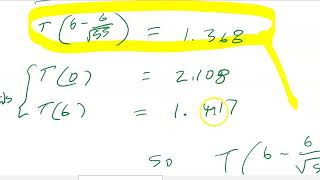 T(6 - 6/√35) = 1.368
T(0) = 2.108
T(6) = 1.417
so T(6 - 6/√35